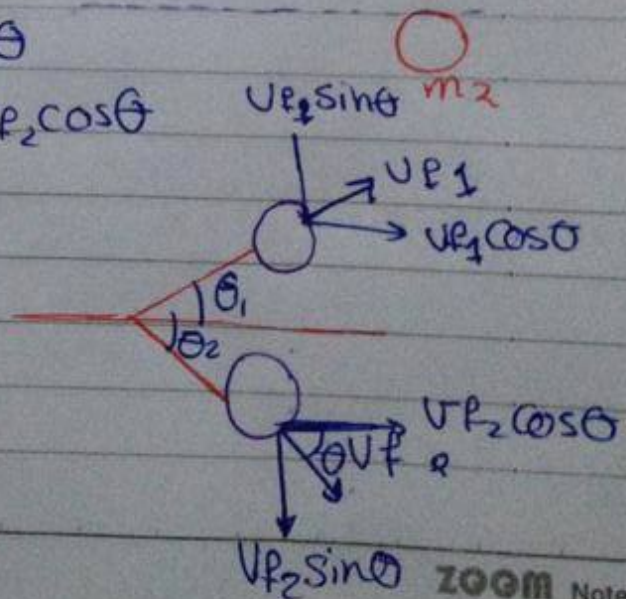 θ
m2
f2 cosθ
Vf1 sinθ
Vf1
Vf1 cosθ
θ1
θ2
Vf2 cosθ
θ Vf2
Vf2 sinθ
ZOOM Note